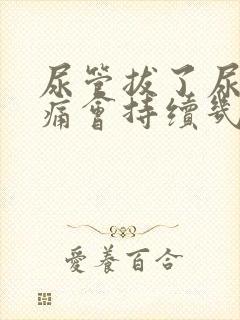 尿管拔了尿
痛會持續幾
愛養百合